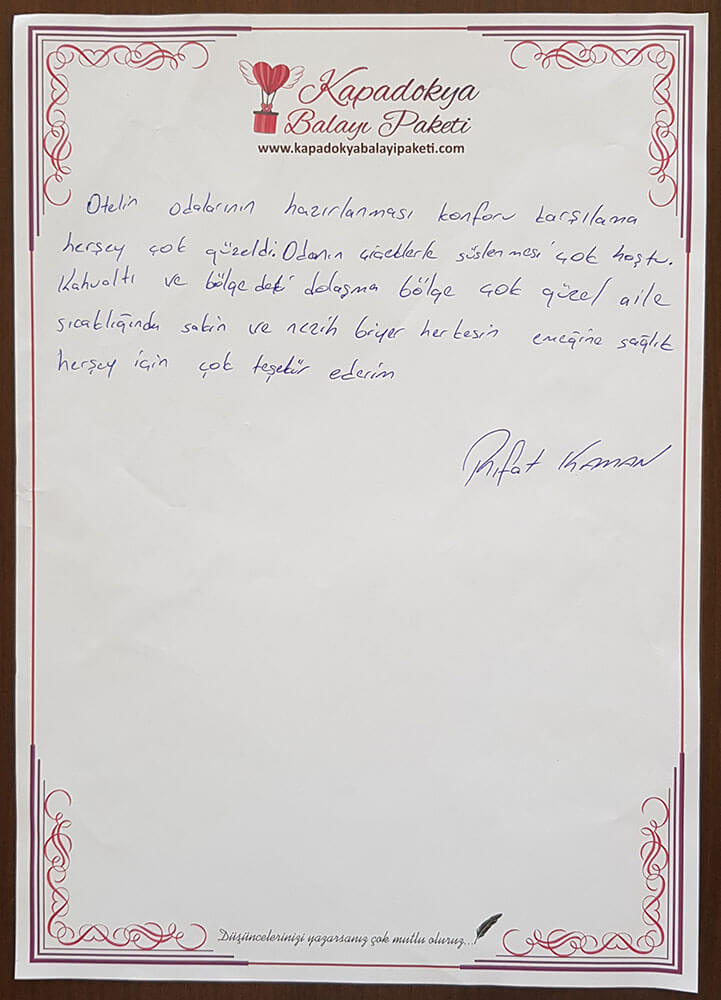 Kapadokya
Balayı Paketi
www.kapadokyabalayipaketi.com
Otelin odalarının hazırlanması konforu karşılama
herşey çok güzeldi. Odanın çiçeklerle süslenmesi çok hoştu.
Kahvaltı ve bölgedeki dolaşma bölge çok güzel aile
sıcaklığında sakin ve nezih biryer herkesin emeğine sağlık
herşey için çok teşekür ederim
Rıfat KAMAN
Düşüncelerinizi yazarsanız çok mutlu oluruz...